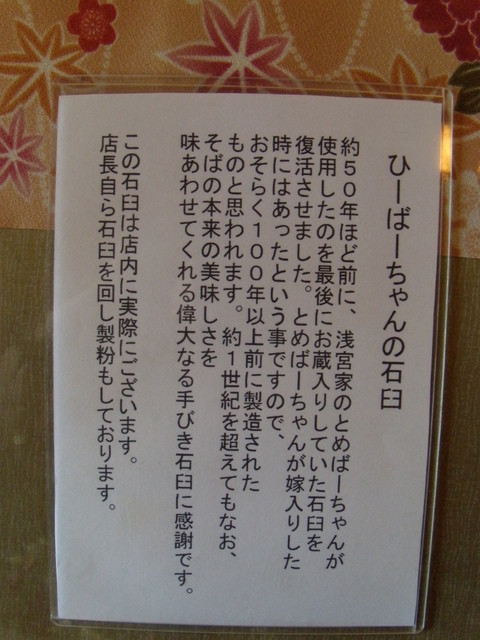 ひーばーちゃんの石臼
約50年ほど前に、浅宮家のとめばーちゃんが
使用したのを最後にお蔵入りしていた石臼を
復活させました。とめばーちゃんが嫁入りした
時にはあったという事ですので、
おそらく100年以上前に製造された
ものと思われます。約1世紀を超えてもなお、
そばの本来の美味しさを
味あわせてくれる偉大なる手びき石臼に感謝です。
この石臼は店内に実際にございます。
店長自ら石臼を回し製粉もしております。